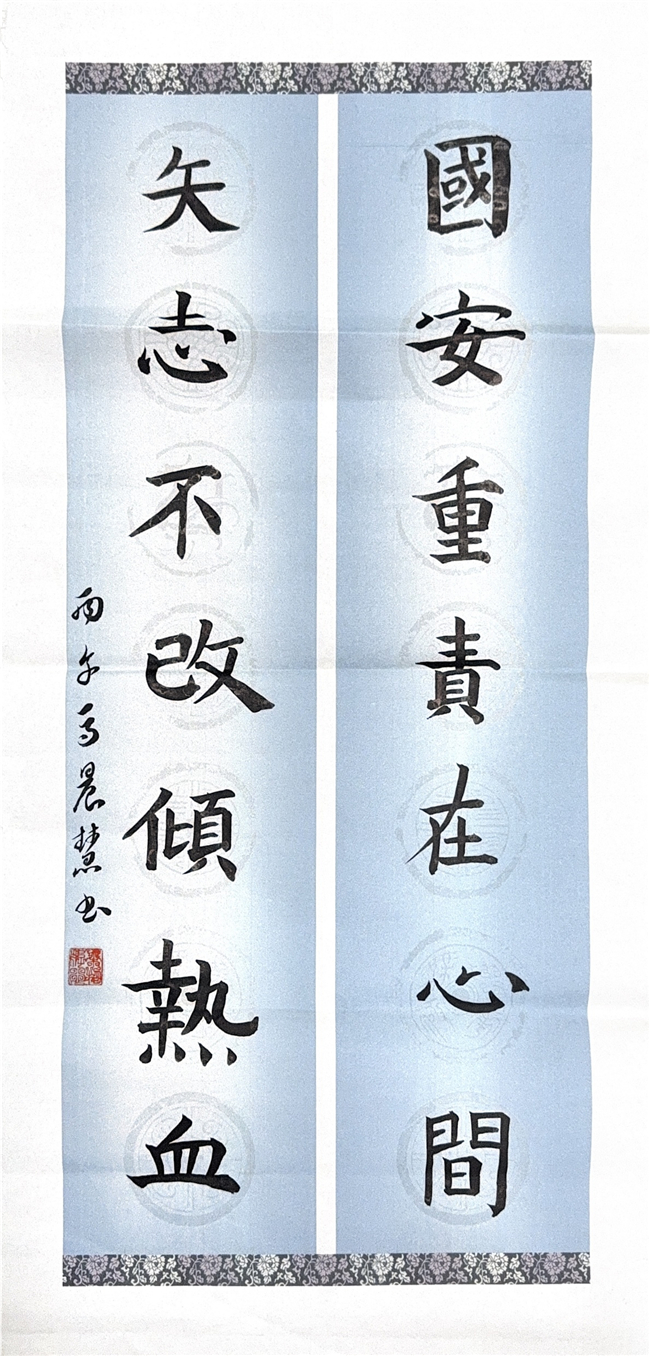 國安重責在心間
矢志不改傾熱血
晨慧书